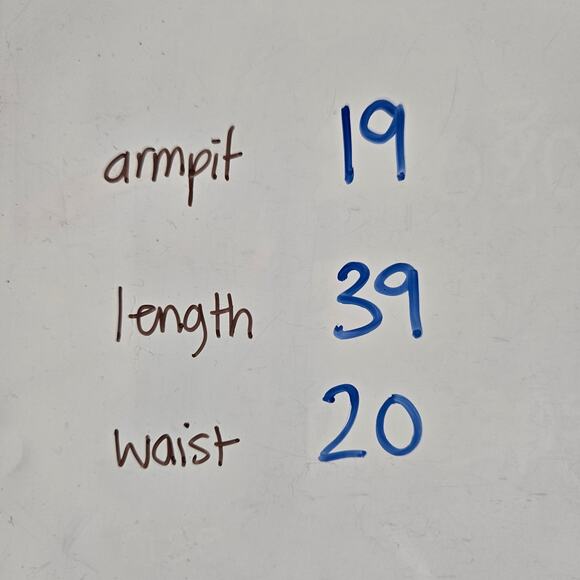 armpit 19
length 39
waist 20